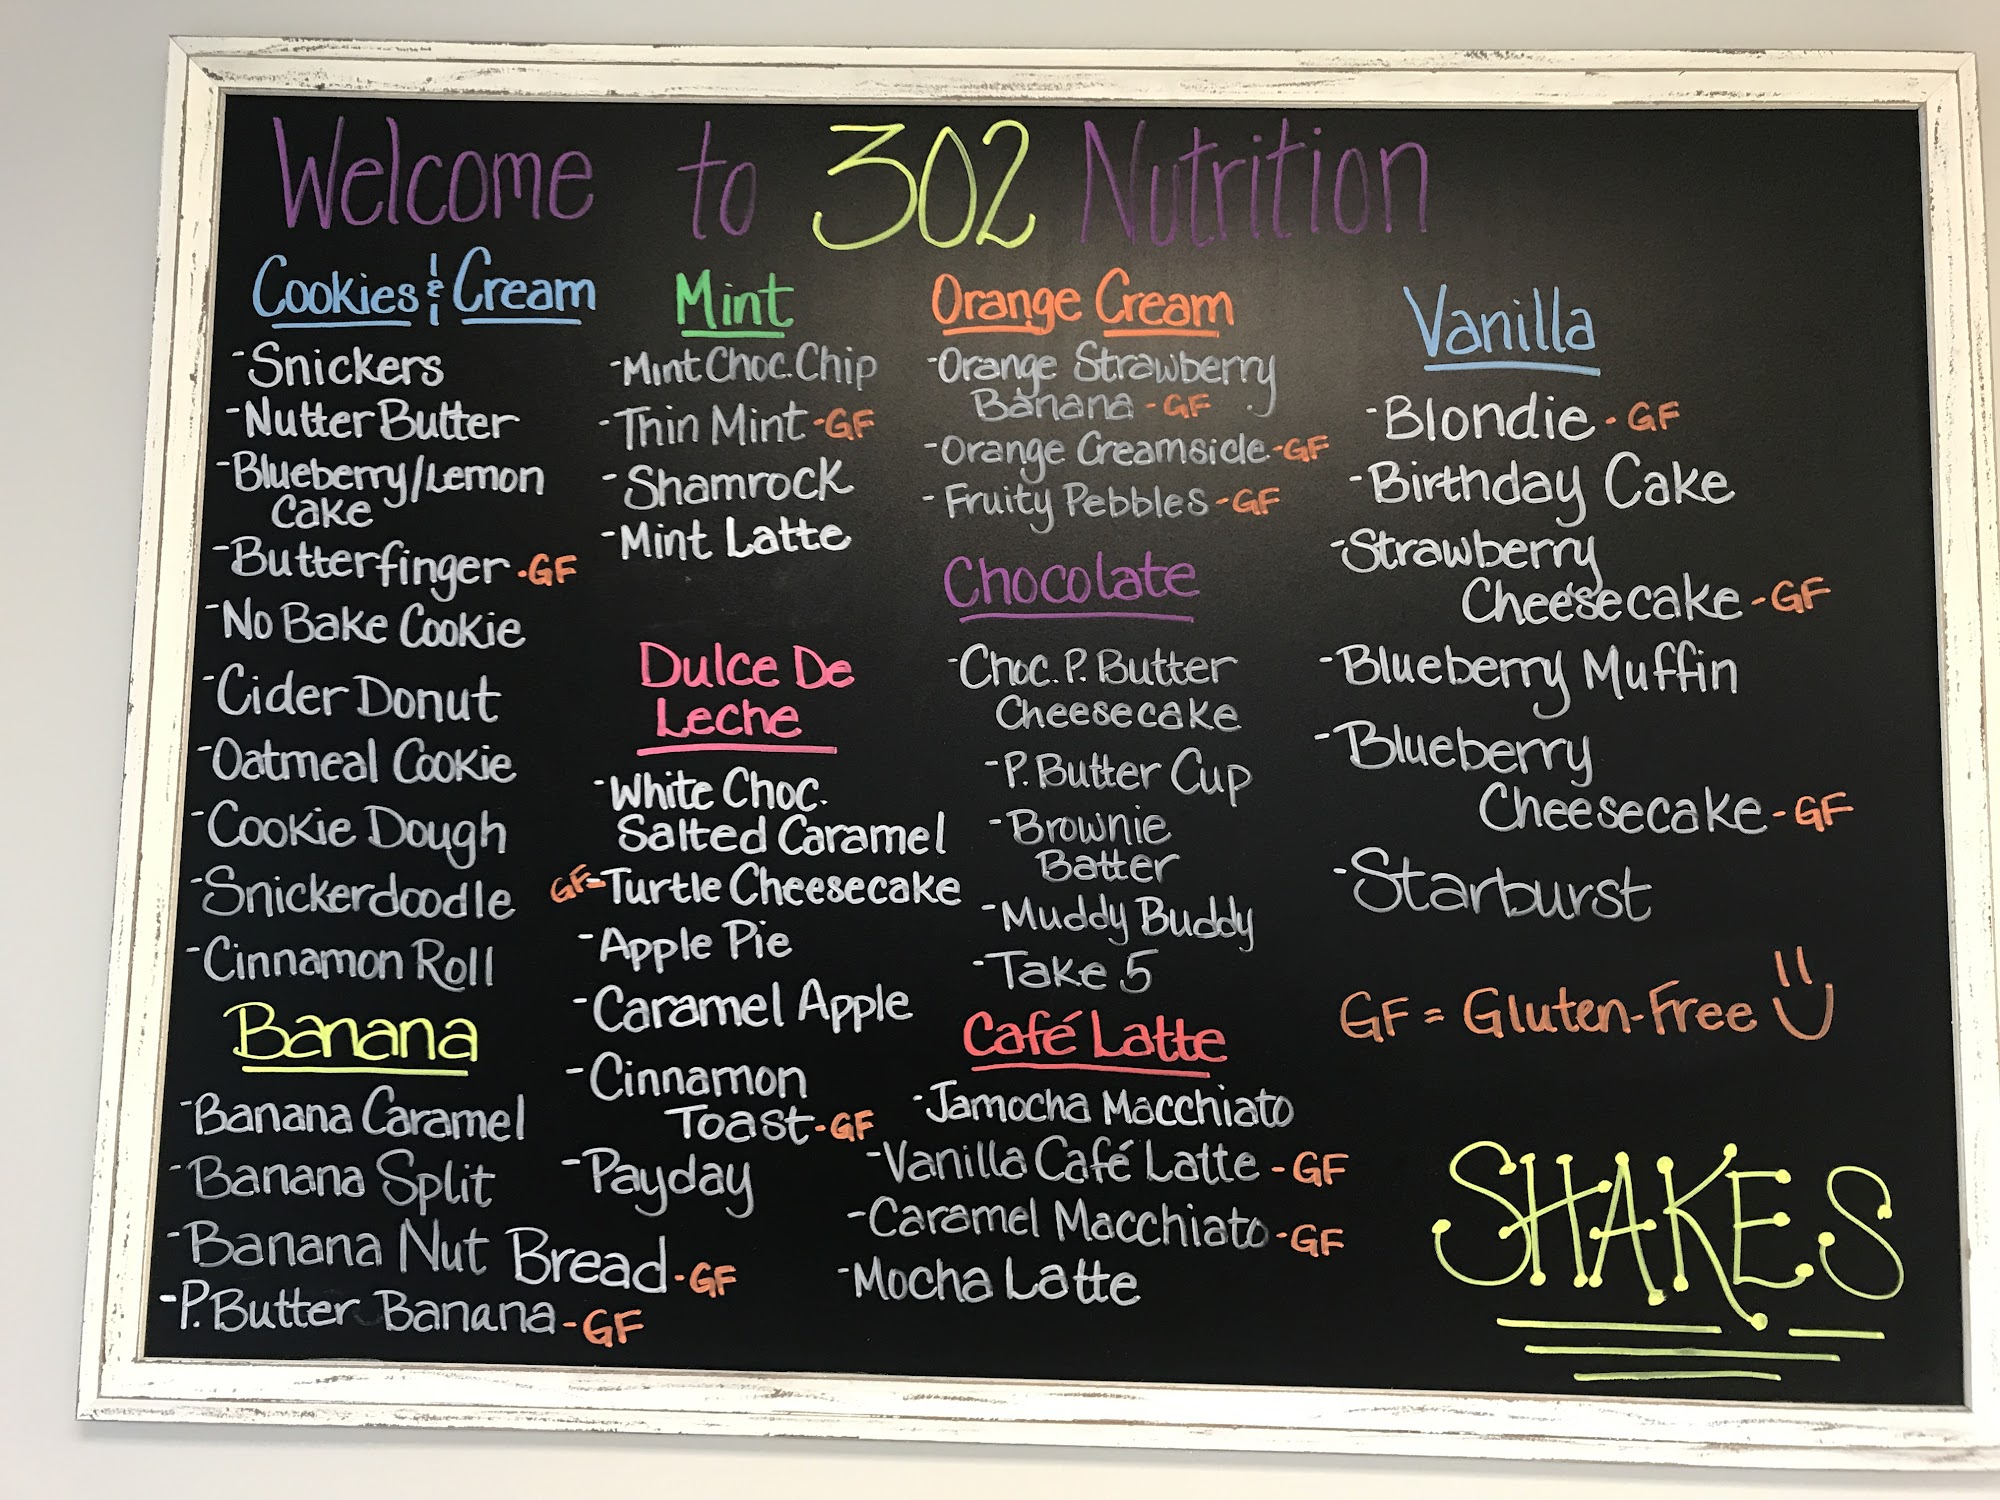 Welcome to 302 Nutrition
Cookies & Cream
-Snickers
-Nutter Butter
-Blueberry/Lemon
Cake
-Butterfinger -GF
-No Bake Cookie
-Cider Donut
-Oatmeal Cookie
-Cookie Dough
-Snickerdoodle
-Cinnamon Roll
Banana
-Banana Caramel
-Banana Split
-Banana Nut Bread -GF
-P. Butter Banana -GF
Mint
-Mint Choc. Chip
-Thin Mint -GF
-Shamrock
-Mint Latte
Dulce De
Leche
-White Choc.
Salted Caramel
GF -Turtle Cheesecake
-Apple Pie
-Caramel Apple
-Cinnamon
Toast -GF
-Payday
Orange Cream
-Orange Strawberry
Banana -GF
-Orange Creamsicle -GF
-Fruity Pebbles -GF
Chocolate
-Choc. P. Butter
Cheesecake
-P. Butter Cup
-Brownie
Batter
-Muddy Buddy
-Take 5
Café Latte
-Jamocha Macchiato
-Vanilla Café Latte -GF
-Caramel Macchiato -GF
-Mocha Latte
Vanilla
-Blondie -GF
-Birthday Cake
-Strawberry
Cheesecake -GF
-Blueberry Muffin
-Blueberry
Cheesecake -GF
-Starburst
GF = Gluten-Free
SHAKES